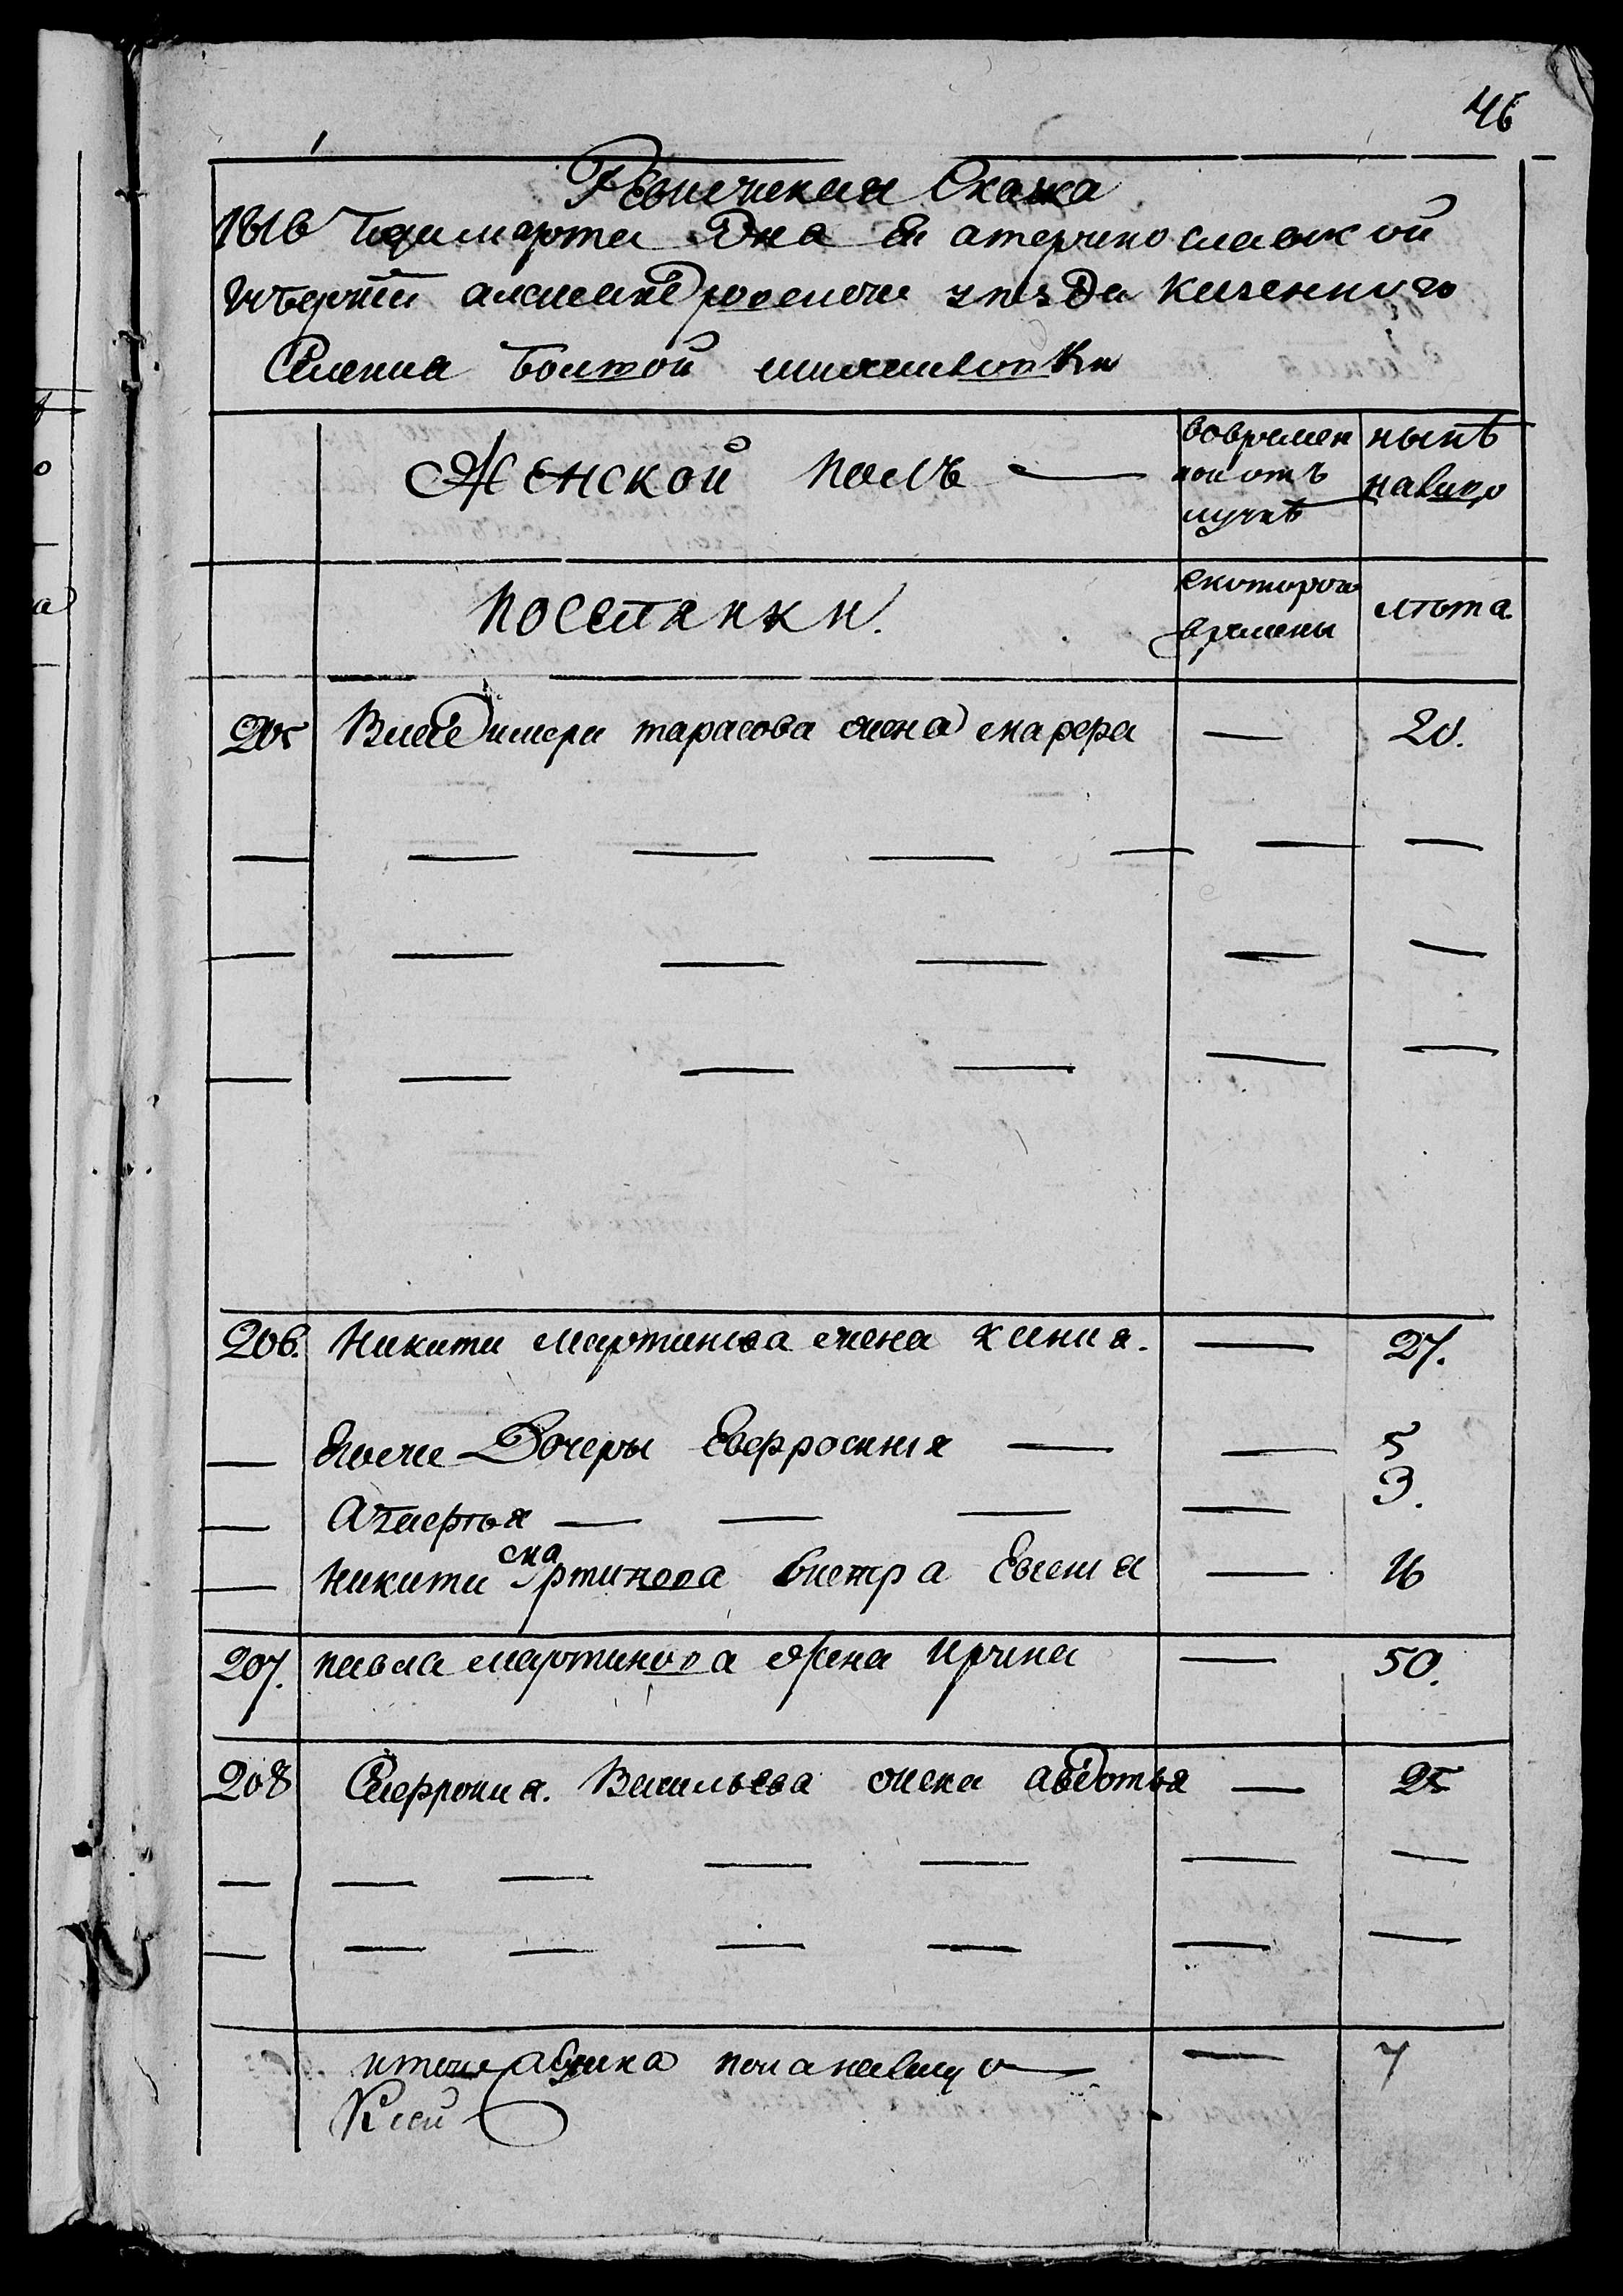 46
Ревижская Скаска
1816 Года марта Дня Екатеринославской
губернии александровского уезда казенного
Селения Болшой михайловки
Женской полъ
вовремен
ной отъ
лучкѣ
нынѣ
налицо
поселянки.
скоторого
времены
лѣта
205 Владимера тарасова жена мафера — 20.
206. Никити мартинова жена хения. — 27.
Егоже Дочеры Евфросиния — 5
Агафья — 3.
Никити мартинова систра Евгения — 16
207. павла мартинова жена Ирина — 50.
208 Сафрония. Васильева жена авдотья — 25
итого женска пола налицо — 7